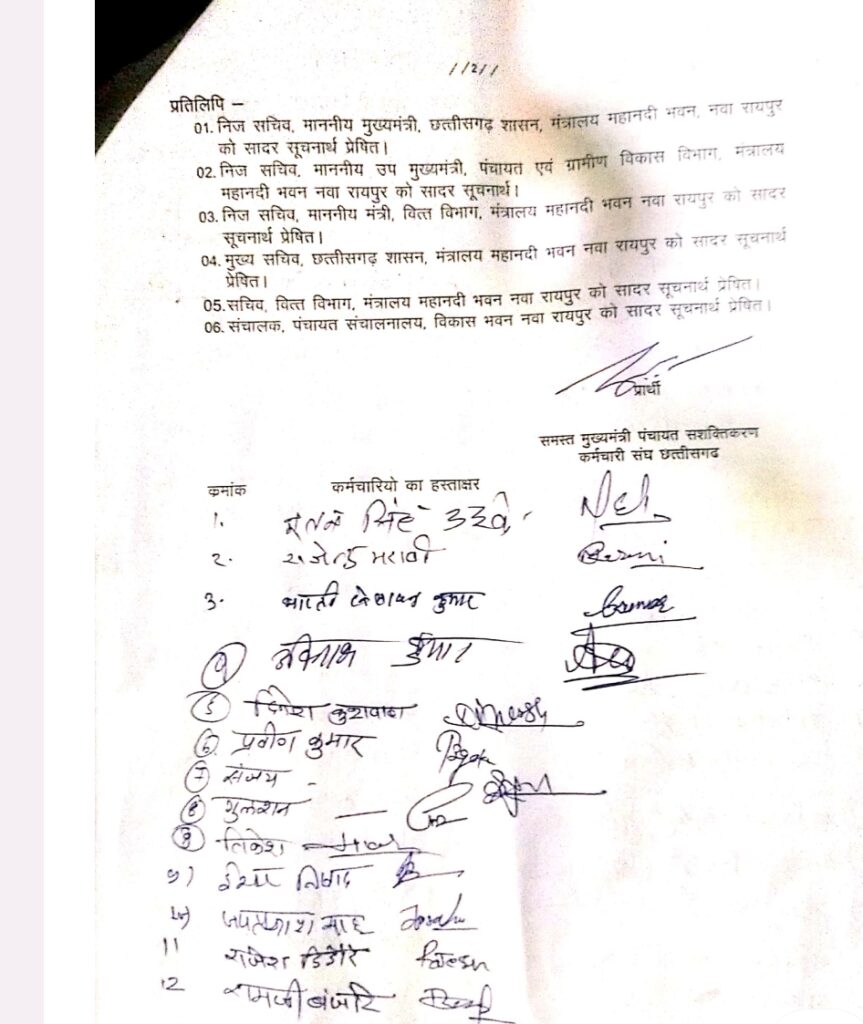 //2//
प्रतिलिपि –
01. निज सचिव, माननीय मुख्यमंत्री, छत्तीसगढ़ शासन, मंत्रालय महानदी भवन, नवा रायपुर
को सादर सूचनार्थ प्रेषित।
02. निज सचिव, माननीय उप मुख्यमंत्री, पंचायत एवं ग्रामीण विकास विभाग, मंत्रालय
महानदी भवन नवा रायपुर को सादर सूचनार्थ।
03. निज सचिव, माननीय मंत्री, वित्त विभाग, मंत्रालय महानदी भवन नवा रायपुर को सादर
सूचनार्थ प्रेषित।
04. मुख्य सचिव, छत्तीसगढ़ शासन, मंत्रालय महानदी भवन नवा रायपुर को सादर सूचनार्थ
प्रेषित।
05. सचिव, वित्त विभाग, मंत्रालय महानदी भवन नवा रायपुर को सादर सूचनार्थ प्रेषित।
06. संचालक, पंचायत संचालनालय, विकास भवन नवा रायपुर को सादर सूचनार्थ प्रेषित।
प्रार्थी
समस्त मुख्यमंत्री पंचायत सशक्तिकरण
कर्मचारी संघ छत्तीसगढ
क्रमांक कर्मचारियो का हस्ताक्षर
1. सिंह
2. राजेन्द्र मरावी
3. भारती कुमार
4 अविनाश कुमार
5 दिनेश कुशवाहा Dinesh
6 प्रवीण कुमार
7 संजय
8 गुलशन
9 तिकेश
9) निषाद
10) जयप्रकाश साहू
11 राजेश डिडोरे
12 रामजी बंजारे